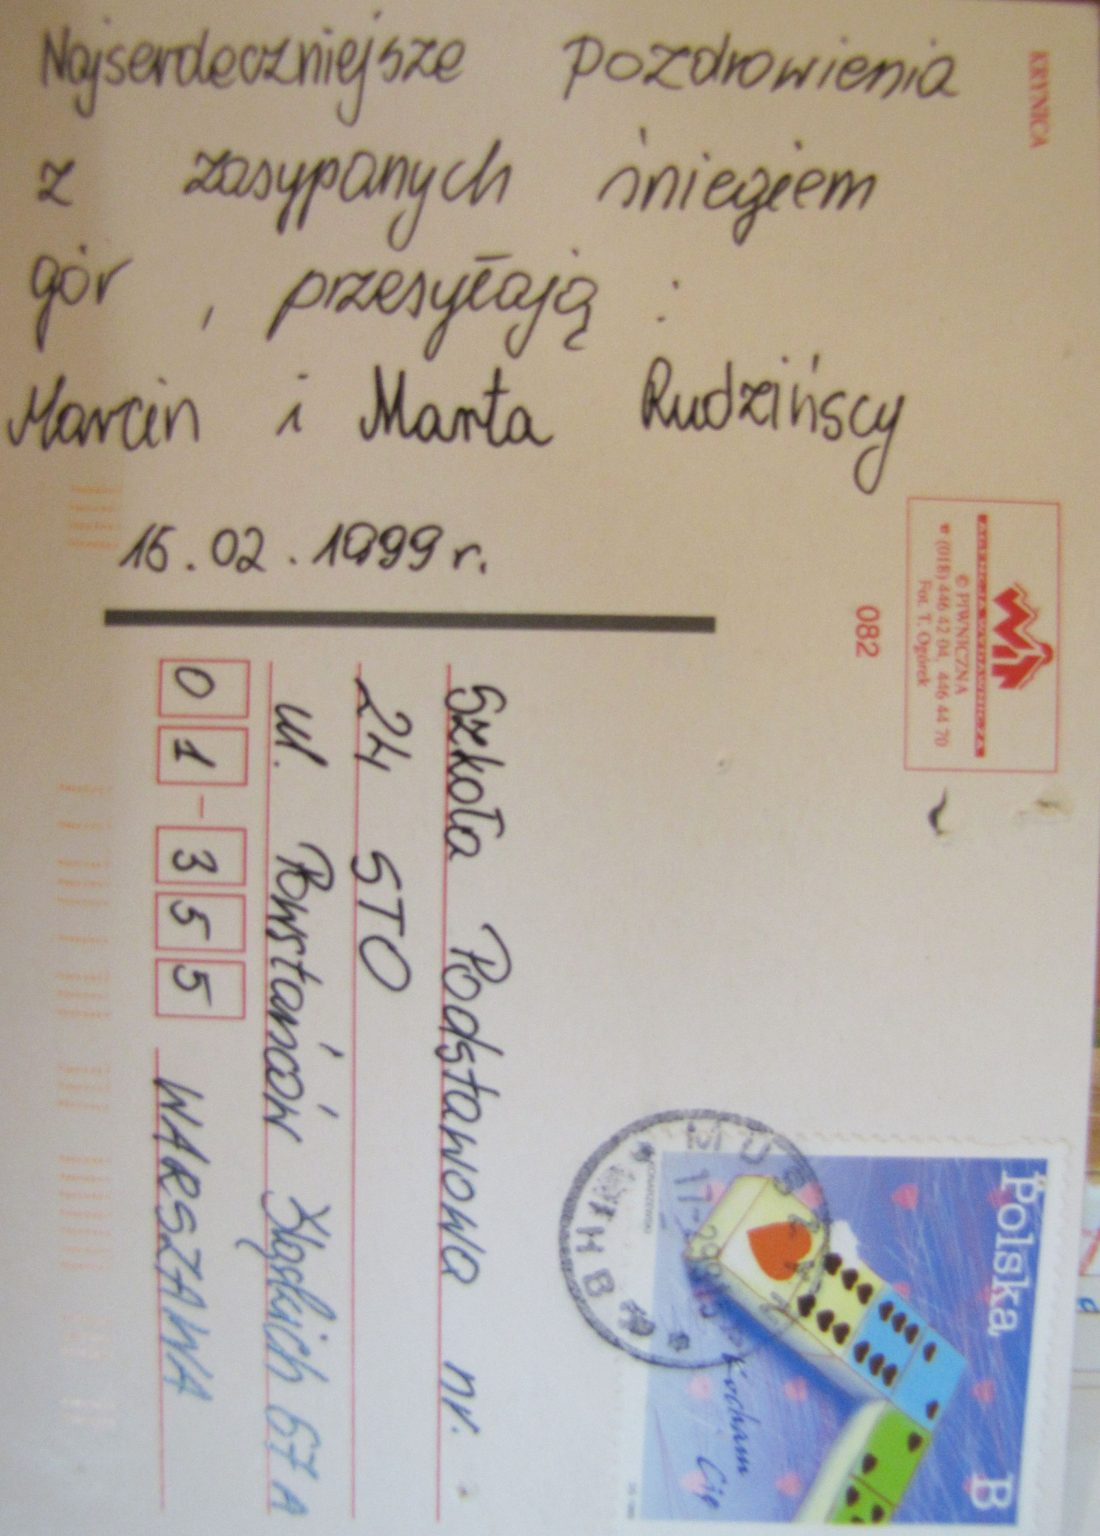 Najserdeczniejsze pozdrowienia
z zasypanych śniegiem
gór, przesyłają:
Marcin i Marta Rudzińscy
15.02.1999 r.
KRYNICA
© PIWNICZNA
☎ (018) 446 42 04, 446 44 70
Fot. T. Ogórek
082
Szkoła Podstawowa nr.
24 STO
ul. Powstańców Śląskich 67A
01-355 WARSZAWA
Polska
B
Kocham Cię